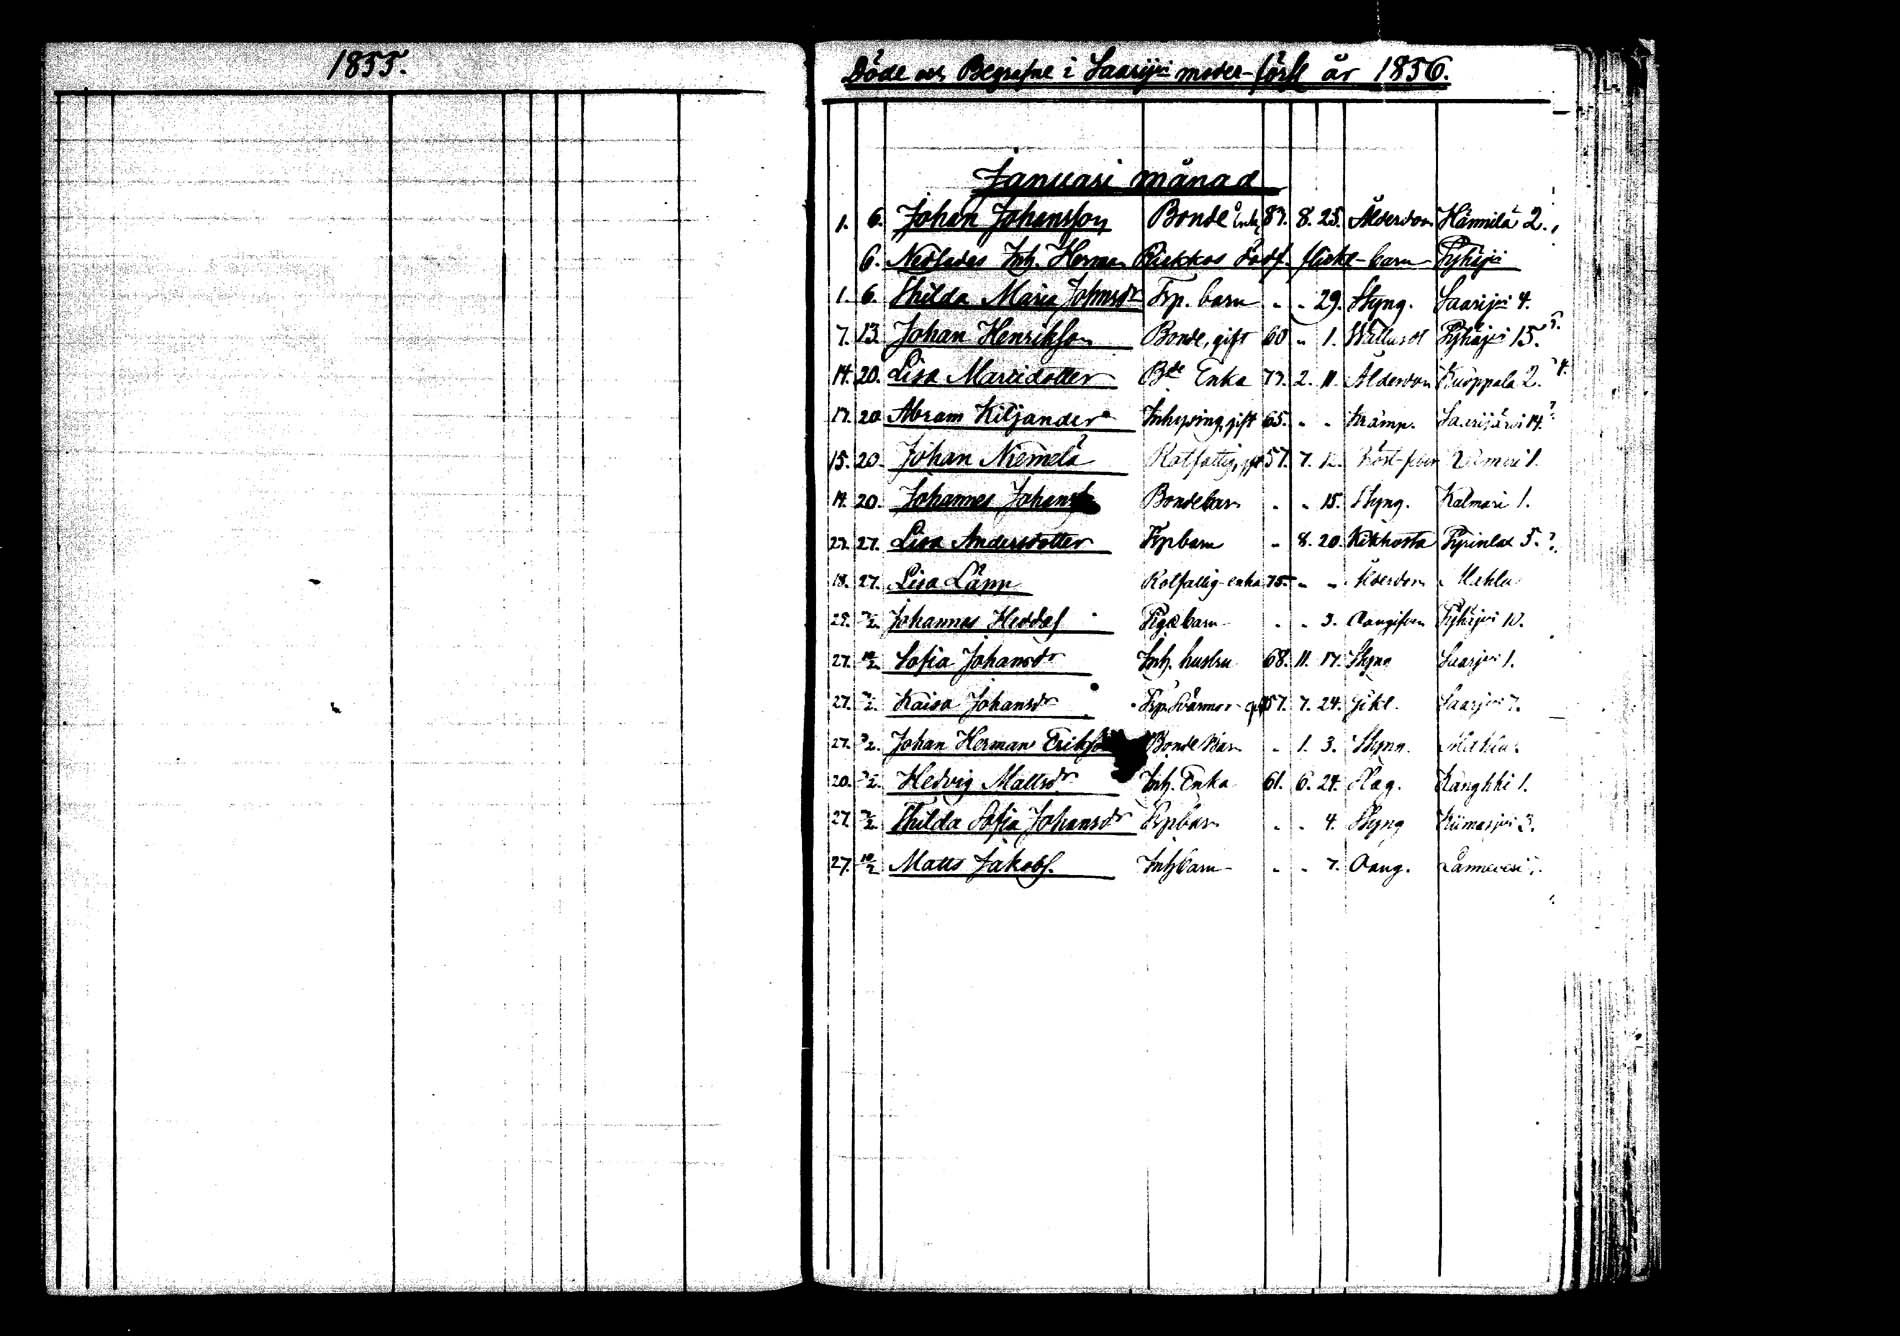 1855.
Döde och Begrafne i Saarijvi moder-förs år 1856.
Januari månad
1. 6. Johan Johansson Bonde Enkl. 87. 8. 25. Ålderdom Hännilä 2.
6. Nedlades Inh. Herman Riekkos dödf. flicke-barn Pyhäjvi
1. 6. Thilda Maria Johansdr Trp. barn - - 29. Slyng. Saarijvi 4.
7. 13. Johan Henriksson Bonde, gift 60 - 1. Wattusot Pyhäjvi 15.
14. 20. Lisa Mattsdotter Bde Enka 77. 2. 11. Ålderdom Kuoppala 2.
17. 20. Abram Kiljander Inhysing, gift 65. - - Kramp. Saarijärvi 14.
15. 20. Johan Niemelä Rotfattig, gift 57. 7. 12. Röst-feber
14. 20. Johannes Johans Bondebarn - - 15. Slyng. Kalmari 1.
27. 27. Lisa Andersdotter Trpbarn - 8. 20. Kikhosta Pyrinlax 5.
18. 27. Lisa Lämp Rotfattig-enka 75 - - Ålderdom Mahlu
25. Johannes Heddaf Pigebarn - - 3. Oangifven Pyhäjvi 10.
27. 10/2 Sofia Johansdr Inh. hustru 68. 11. 17. Slyng Saarijvi 1.
27. Kaisa Johansdr Trp. Svärmor gift 57. 7. 24. Gikt. Saarijvi 7.
27. 3/2. Johan Herman Eriksson Bonde Barn - 1. 3. Slyng. Mahlu
20. Hedvig Mattsdr Inh. Enka 61. 6. 24. Slag. Kangkki 1.
27. Thilda Sofia Johansdr Trpbarn - - 4. Slyng Kiimasjvi 3.
27. 10/2 Matts Jakobs. Inhbarn - - 7. Oang. Lannevesi